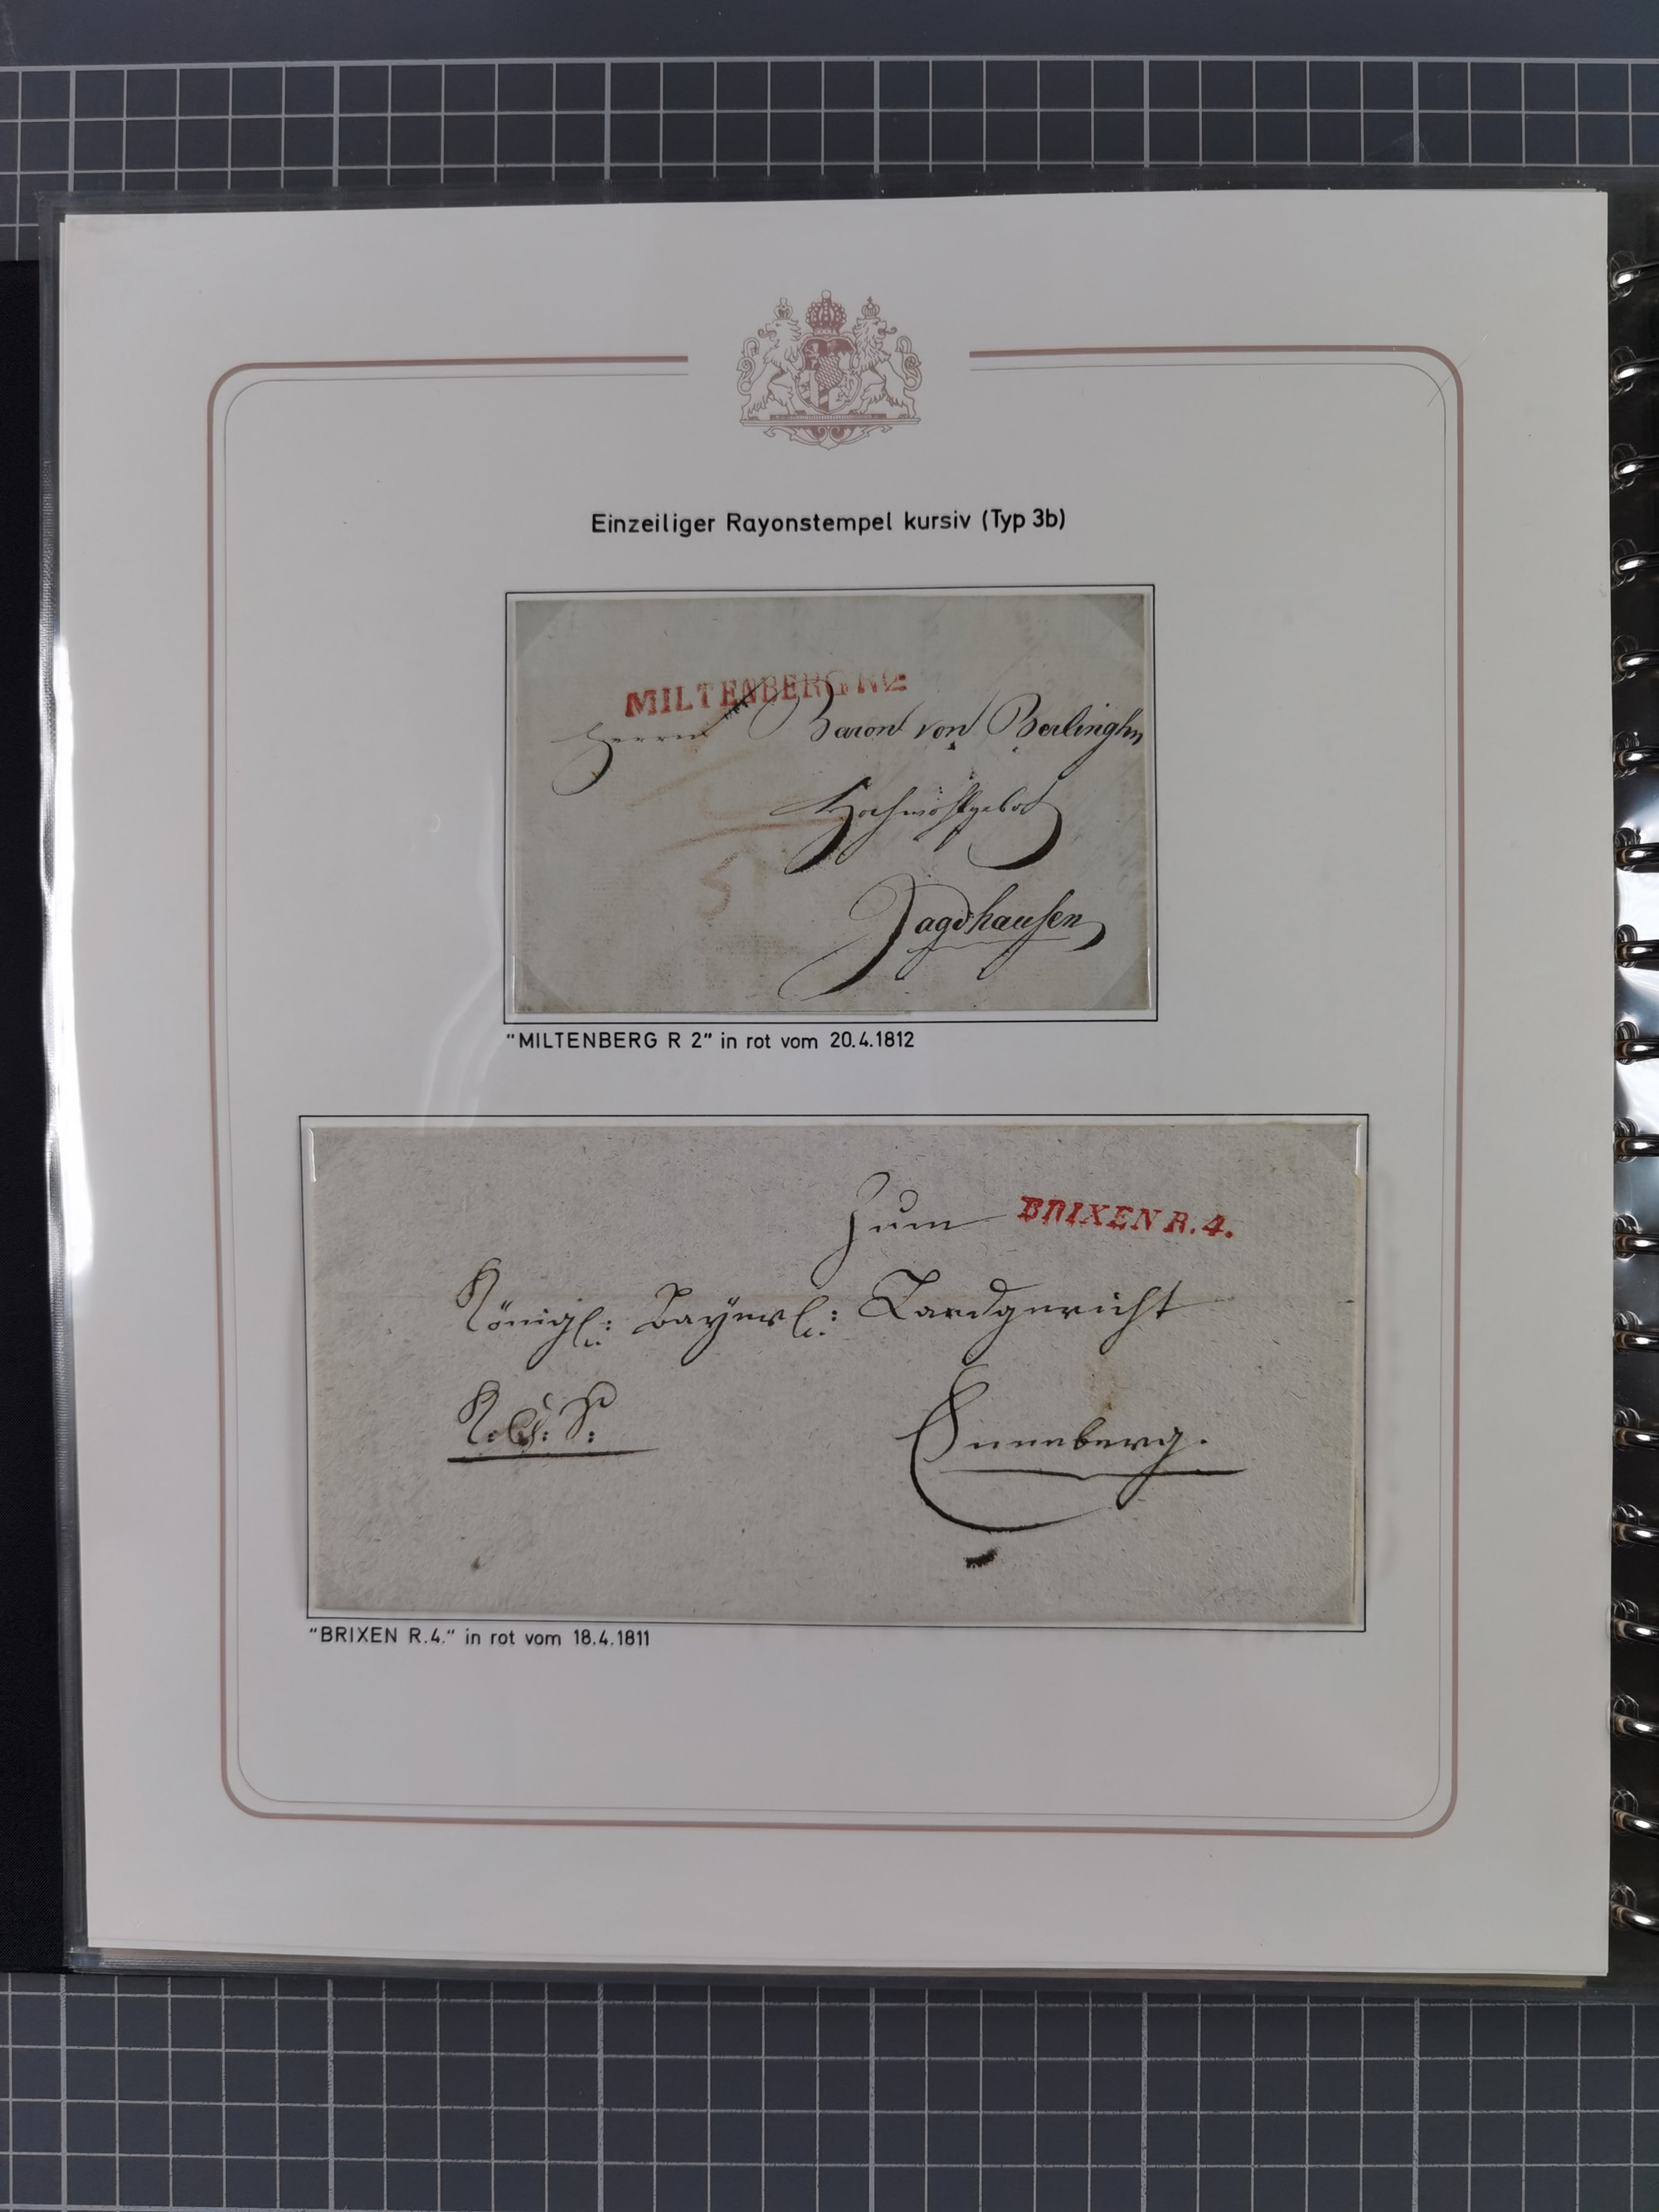 Einzeiliger Rayonstempel kursiv (Typ 3b)
MILTENBERG R2
Herrn Baron von Berlinghn
Hochwohlgebor
Jagdhausen
"MILTENBERG R 2" in rot vom 20.4.1812
Zum BRIXEN R.4.
Königl: Bayerl: Landgericht
Enneberg.
"BRIXEN R.4." in rot vom 18.4.1811